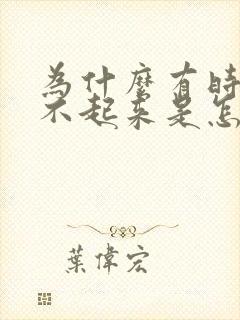 為什麼有時
不起來是怎
葉偉宏